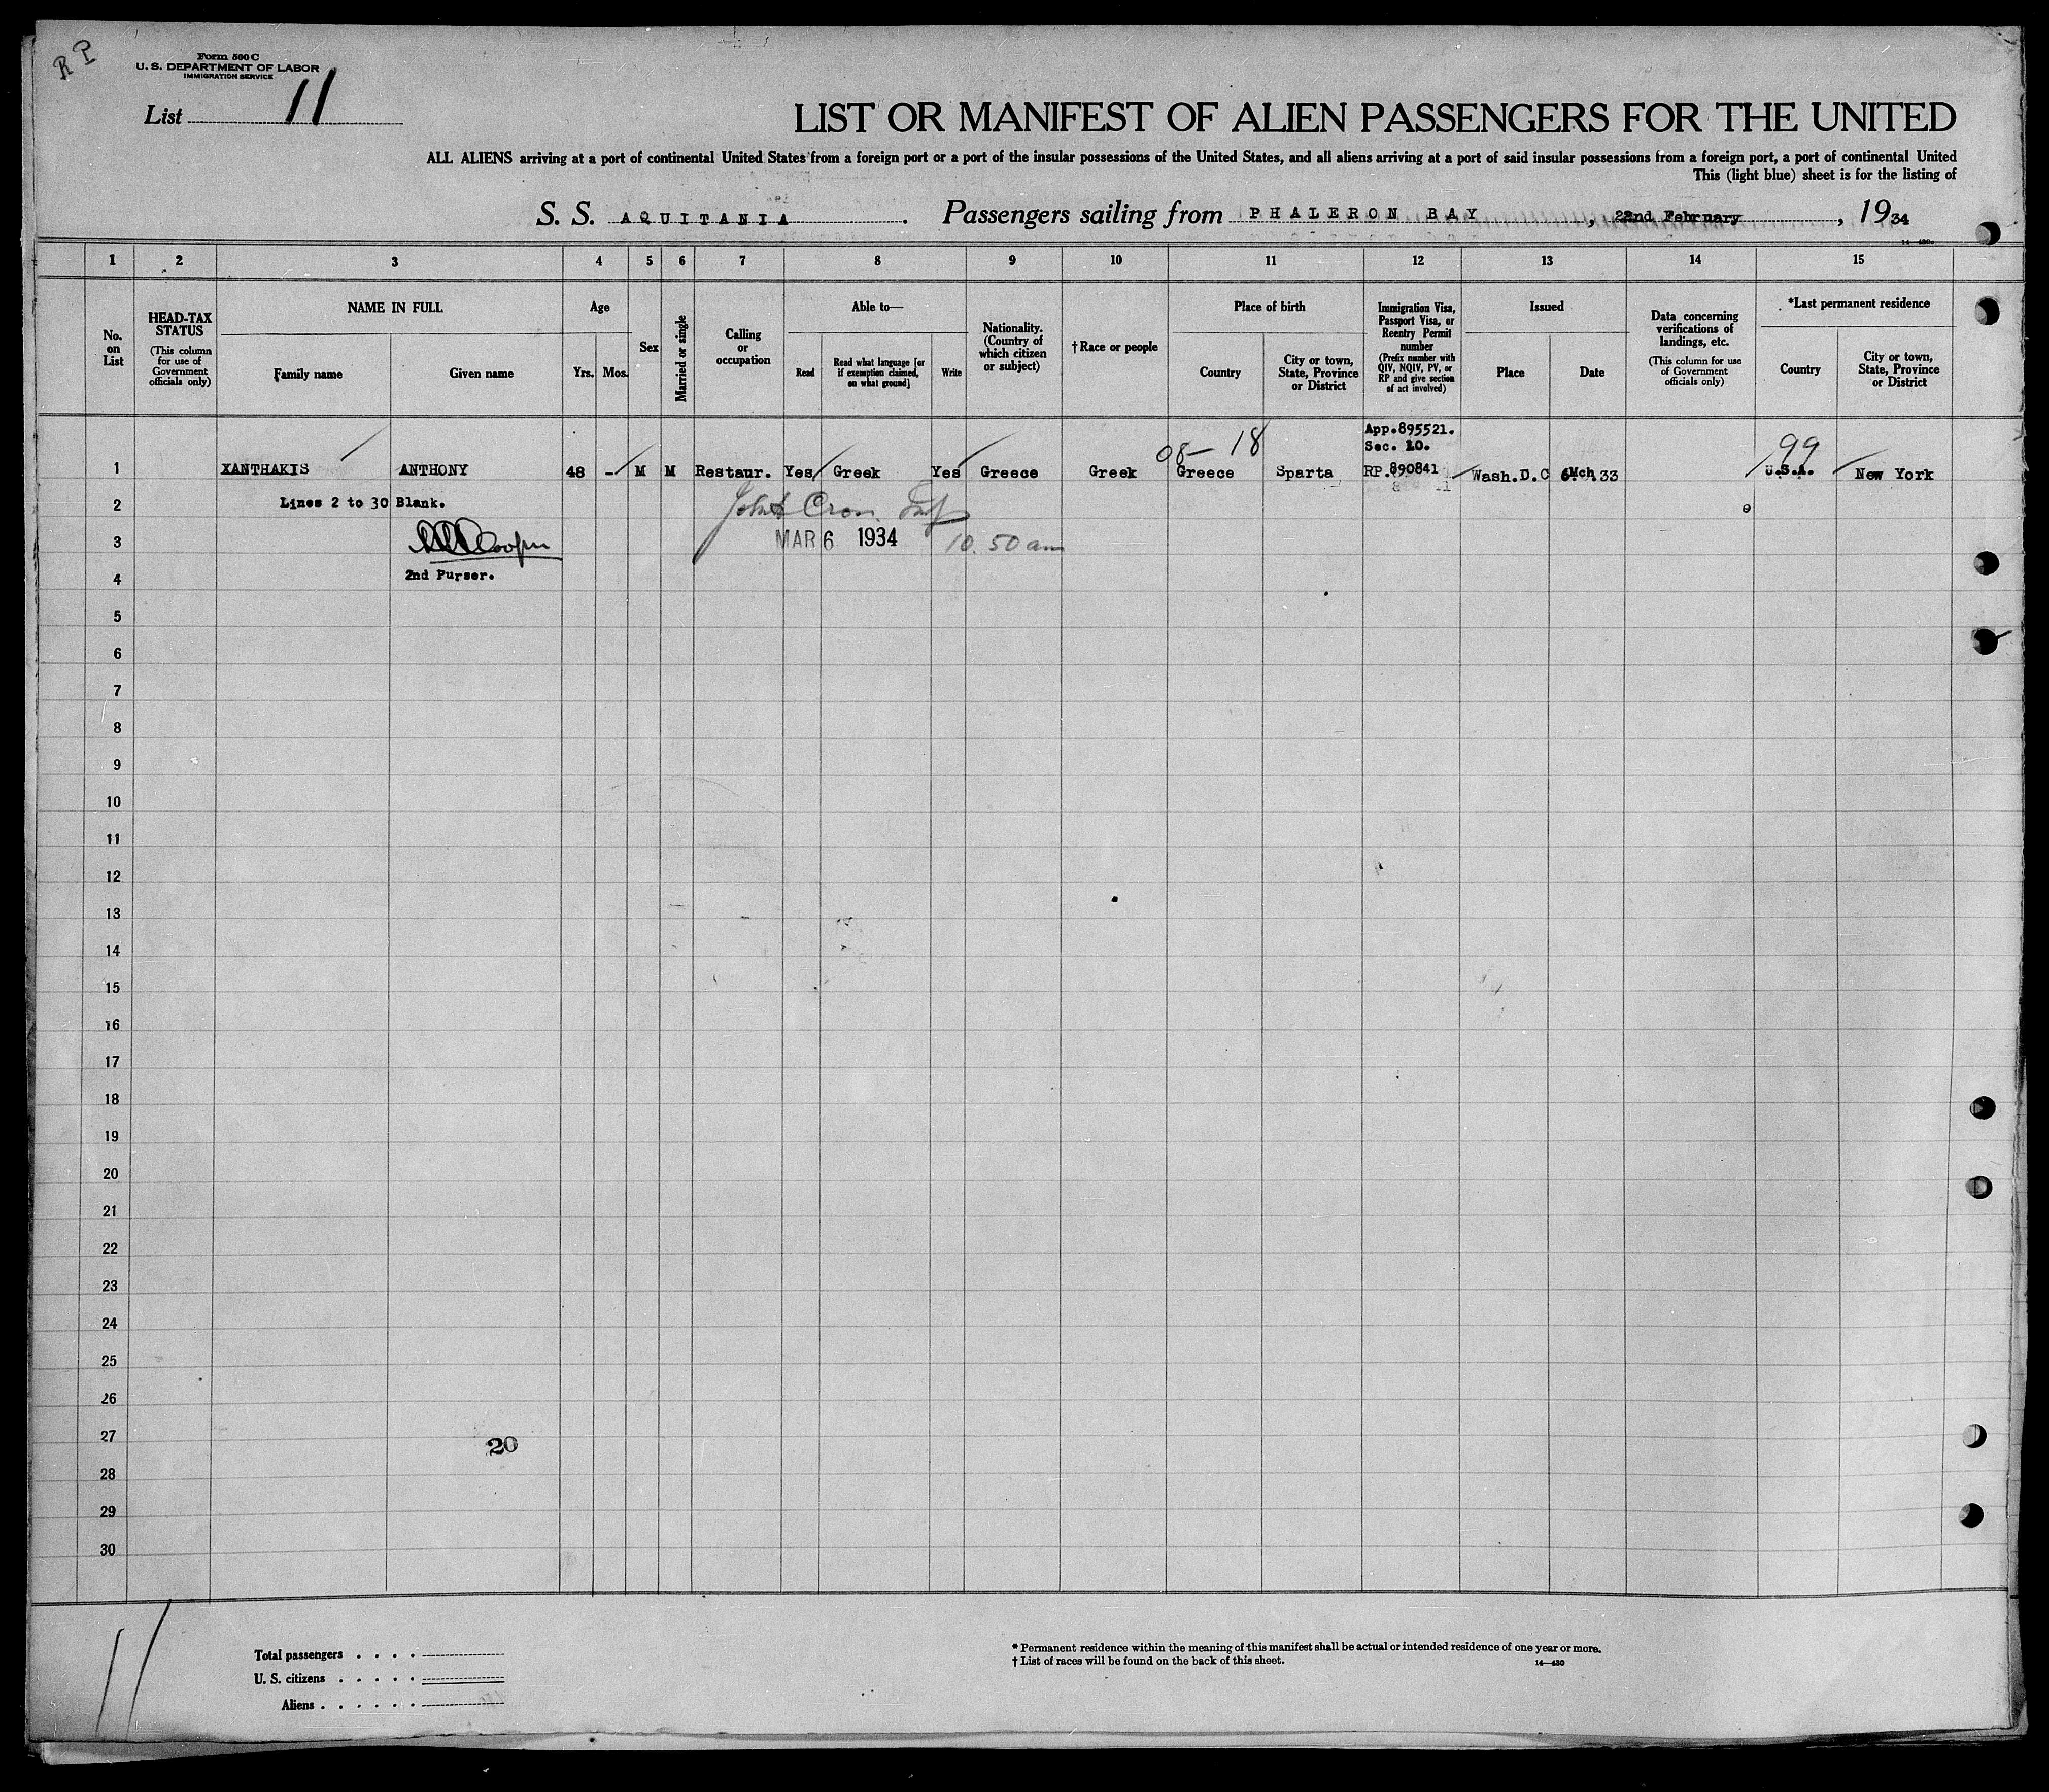 R P
Form 500 C
U. S. DEPARTMENT OF LABOR
IMMIGRATION SERVICE
List 11
LIST OR MANIFEST OF ALIEN PASSENGERS FOR THE UNITED
ALL ALIENS arriving at a port of continental United States from a foreign port or a port of the insular possessions of the United States, and all aliens arriving at a port of said insular possessions from a foreign port, a port of continental United
This (light blue) sheet is for the listing of
S. S. AQUITANIA. Passengers sailing from PHALERON BAY, 22nd February, 1934
1 2 3 4 5 6 7 8 9 10 11 12 13 14 15
No. on List
HEAD-TAX STATUS
(This column for use of Government officials only)
NAME IN FULL
Family name
Given name
Age
Yrs. Mos.
Sex
Married or single
Calling or occupation
Able to—
Read
Read what language [or if exemption claimed, on what ground]
Write
Nationality. (Country of which citizen or subject)
† Race or people
Place of birth
Country
City or town, State, Province or District
Immigration Visa, Passport Visa, or Reentry Permit number
(Prefix number with QIV, NQIV, PV, or RP and give section of act involved)
Issued
Place
Date
Data concerning verifications of landings, etc.
(This column for use of Government officials only)
*Last permanent residence
Country
City or town, State, Province or District
App.895521.
Sec. 10.
08- 18
99
1 XANTHAKIS ANTHONY 48 - M M Restaur. Yes Greek Yes Greece Greek Greece Sparta RP.890841 Wash.D.C 6Mch.33 U.S.A. New York
2 Lines 2 to 30 Blank.
3 MAR 6 1934 10.50 am
2nd Purser.
4
5
6
7
8
9
10
11
12
13
14
15
16
17
18
19
20
21
22
23
24
25
26
27 20
28
29
30
11
Total passengers . . . .
U. S. citizens . . . . .
Aliens . . . . . .
* Permanent residence within the meaning of this manifest shall be actual or intended residence of one year or more.
† List of races will be found on the back of this sheet.
14—430